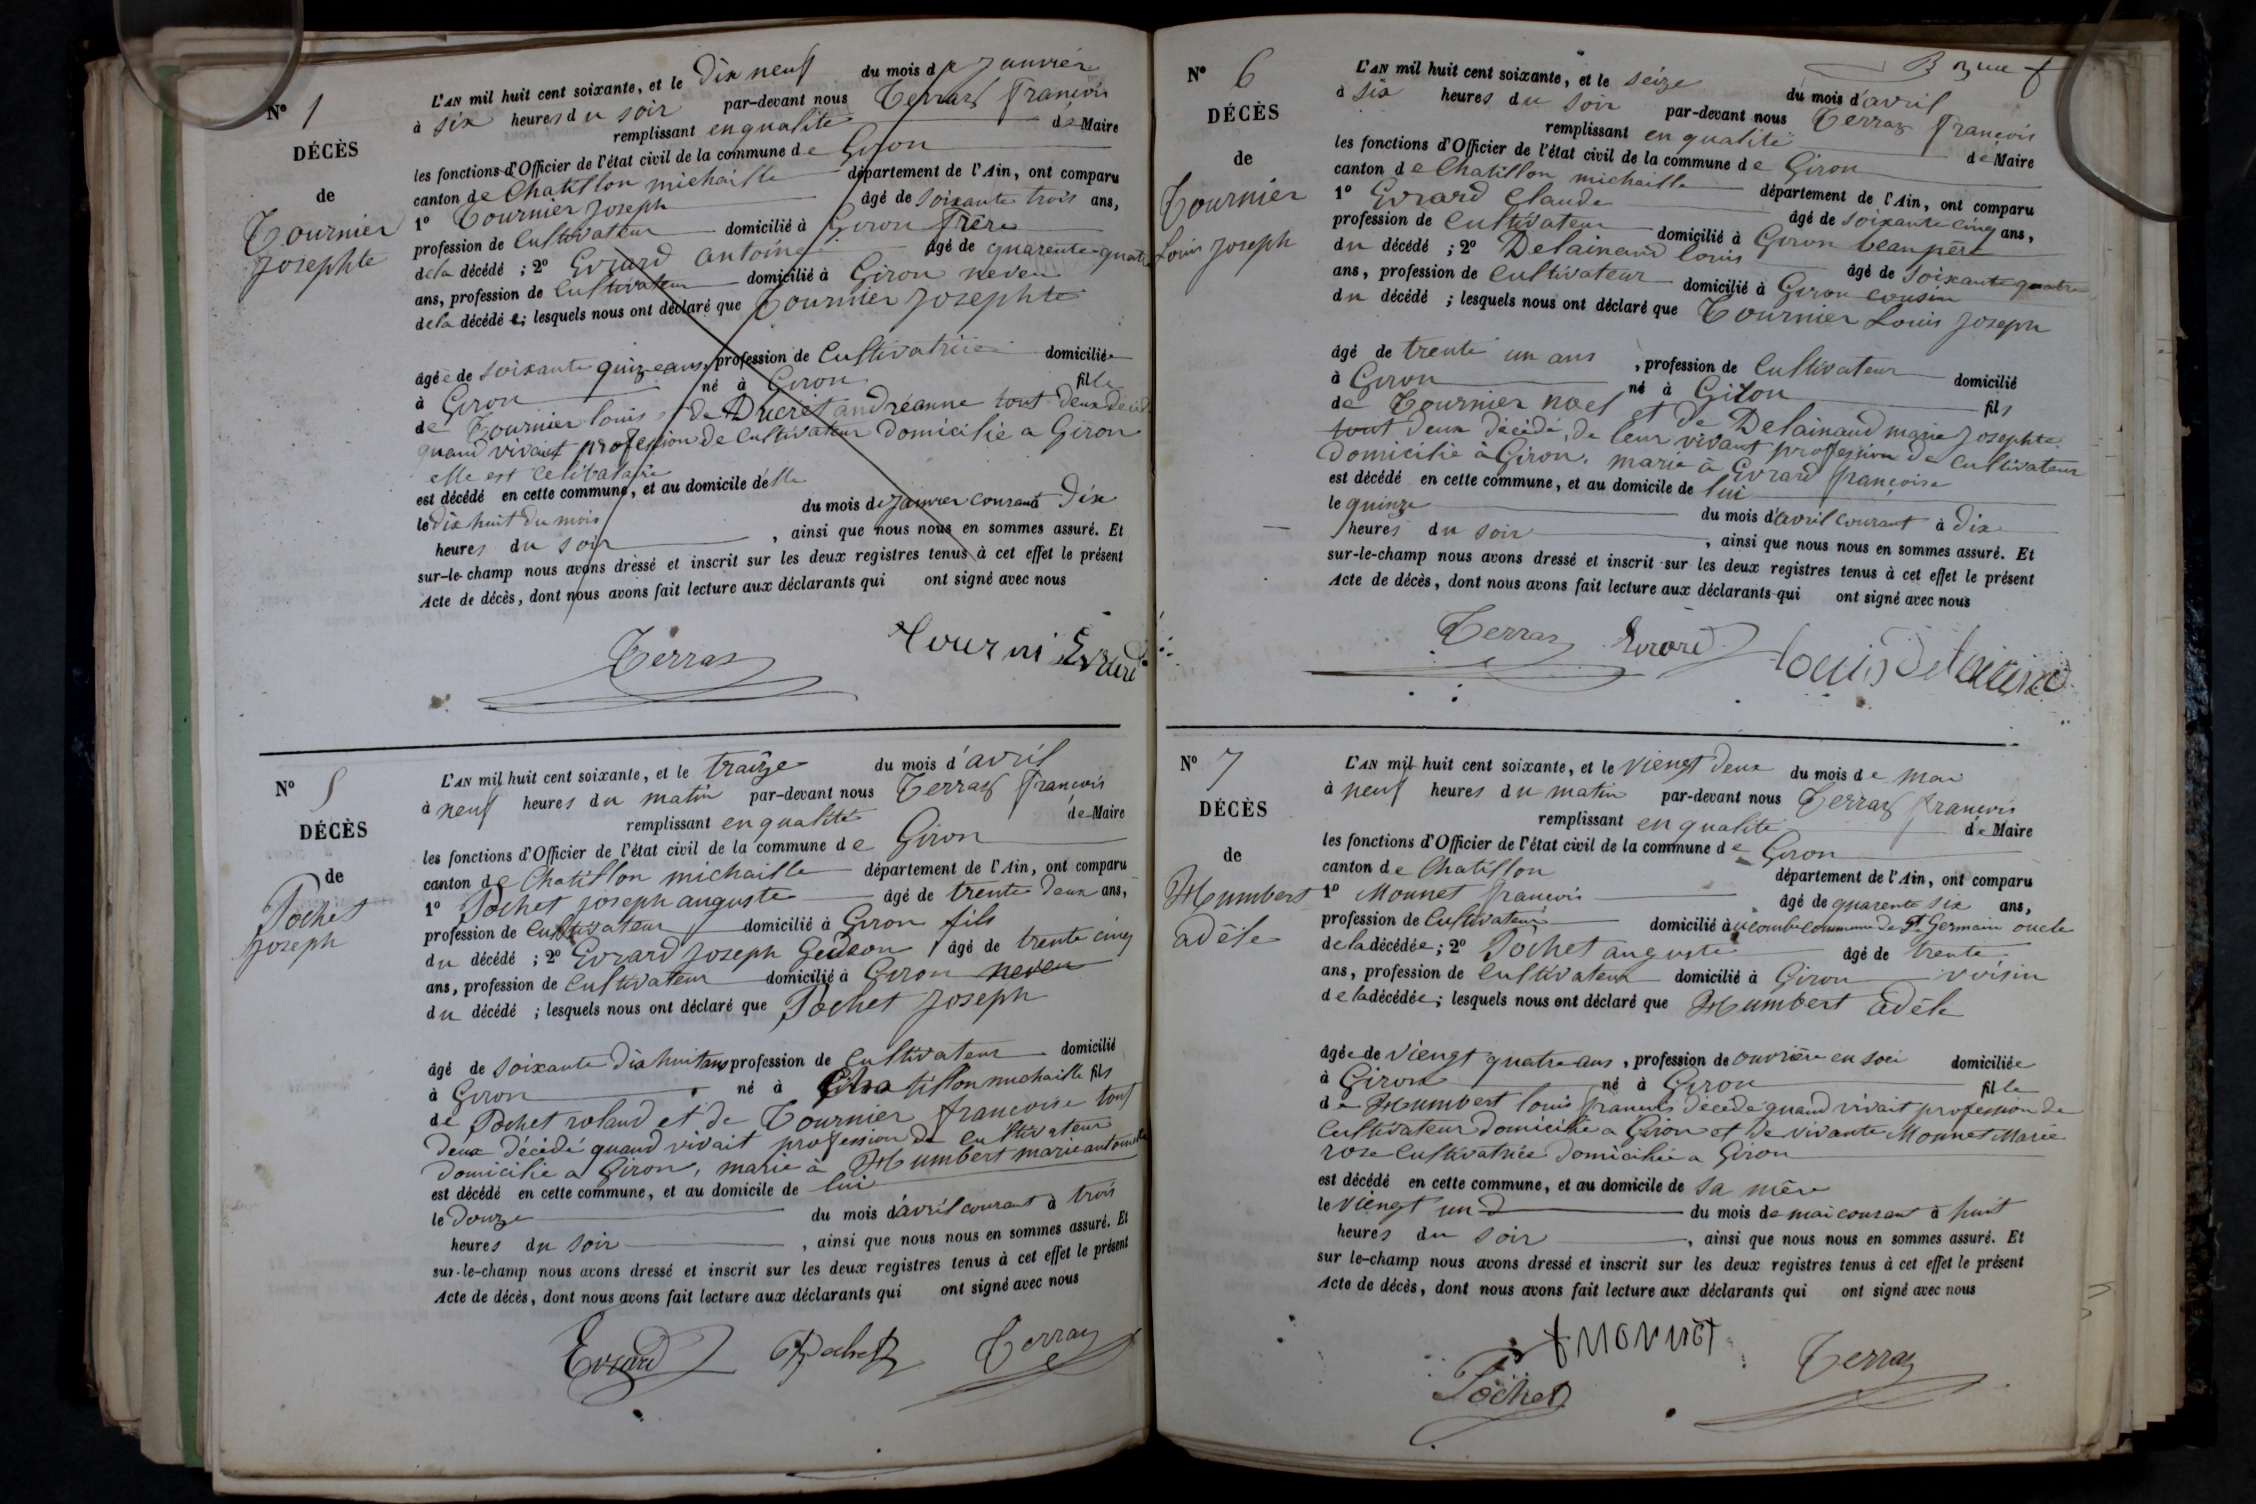 N° 1
DÉCÈS
de
Tournier
Josephte
L'AN mil huit cent soixante, et le Dix neuf du mois de Janvier
à six heures du soir par-devant nous Terraz François
remplissant en qualité de Maire
les fonctions d'Officier de l'état civil de la commune de Giron
canton de Chatillon michaille département de l'Ain, ont comparu
1° Tournier Joseph âgé de soixante trois ans,
profession de Cultivateur domicilié à Giron frère
de la décédé ; 2° Evrard antoine âgé de quarente-quatre
ans, profession de Cultivateur domicilié à Giron neveu
de la décédé e; lesquels nous ont déclaré que Tournier Josephte
âgée de soixante quinze ans, profession de Cultivatrice domiciliée
à Giron né à Giron fille
de Tournier louis et de Ducret andréanne tout deux décédé
quand vivait profession de Cultivateur Domicilié a Giron
elle est célibataire
est décédé en cette commune, et au domicile d'elle
le dix huit du mois du mois de Janvier courant à Dix
heures du soir , ainsi que nous nous en sommes assuré. Et
sur-le-champ nous avons dressé et inscrit sur les deux registres tenus à cet effet le présent
Acte de décès, dont nous avons fait lecture aux déclarants qui ont signé avec nous
Terraz Tourni Evrard
N° 5
DÉCÈS
de
Pochet
Joseph
L'AN mil huit cent soixante, et le traize du mois d'avril
à neuf heures du matin par-devant nous Terraz François
remplissant en qualité de Maire
les fonctions d'Officier de l'état civil de la commune de Giron
canton de Chatillon michaille département de l'Ain, ont comparu
1° Pochet joseph auguste âgé de trente deux ans,
profession de Cultivateur domicilié à Giron fils
du décédé ; 2° Evrard Joseph Gedeon âgé de trente cinq
ans, profession de Cultivateur domicilié à Giron neveu
du décédé ; lesquels nous ont déclaré que Pochet Joseph
âgé de soixante Dix huit ans profession de Cultivateur domicilié
à Giron né à Chatillon michaille fils
de Pochet roland et de Tournier francoise tout
deux décédé quand vivait profession de Cultivateur
domicilié a Giron, marié à Humbert marie antoinette
est décédé en cette commune, et au domicile de lui
le Douze du mois d'avril courant à trois
heures du soir , ainsi que nous nous en sommes assuré. Et
sur-le-champ nous avons dressé et inscrit sur les deux registres tenus à cet effet le présent
Acte de décès, dont nous avons fait lecture aux déclarants qui ont signé avec nous
Evrard Pochet Terraz
N° 6
DÉCÈS
de
Tournier
Louis Joseph
L'AN mil huit cent soixante, et le seize du mois d'avril
à six heures du soir par-devant nous Terraz françois
remplissant en qualité de Maire
les fonctions d'Officier de l'état civil de la commune de Giron
canton de Chatillon michaille département de l'Ain, ont comparu
1° Evrard Claude âgé de soixante cinq ans,
profession de Cultivateur domicilié à Giron beau père
du décédé ; 2° Delainaud louis âgé de soixante quatre
ans, profession de Cultivateur domicilié à Giron cousin
du décédé ; lesquels nous ont déclaré que Tournier Louis Joseph
âgé de trente un ans , profession de Cultivateur domicilié
à Giron né à Giron fils
de Tournier noel et de Delainaud marie Josephte
tout deux décédé, de leur vivant profession de Cultivateur
domicilié à Giron. marié a Evrard françoise
est décédé en cette commune, et au domicile de lui
le quinze du mois d'avril courant à Dix
heures du soir , ainsi que nous nous en sommes assuré. Et
sur-le-champ nous avons dressé et inscrit sur les deux registres tenus à cet effet le présent
Acte de décès, dont nous avons fait lecture aux déclarants qui ont signé avec nous
Terraz Evrard louis Delainaud
N° 7
DÉCÈS
de
Humbert
adèle
L'AN mil huit cent soixante, et le viengt deux du mois de mai
à neuf heures du matin par-devant nous Terraz françois
remplissant en qualité de Maire
les fonctions d'Officier de l'état civil de la commune de Giron
canton de Chatillon département de l'Ain, ont comparu
1° Monnet francois âgé de quarente six ans,
profession de Cultivateur domicilié à commune de St Germain oncle
de la décédée; 2° Pochet auguste âgé de trente
ans, profession de Cultivateur domicilié à Giron voisin
de la décédée; lesquels nous ont déclaré que Humbert adèle
âgée de viengt quatre ans, profession de ouvrière en soei domiciliée
à Giron né à Giron fille
de Humbert louis francois décédé quand vivait profession de
Cultivateur domicilié a Giron et de vivante Monnet Marie
rose Cultivatrice domicilié a Giron
est décédé en cette commune, et au domicile de sa mère
le viengt un du mois de mai courant à huit
heures du soir , ainsi que nous nous en sommes assuré. Et
sur le-champ nous avons dressé et inscrit sur les deux registres tenus à cet effet le présent
Acte de décès, dont nous avons fait lecture aux déclarants qui ont signé avec nous
f monnet
Pochet Terraz